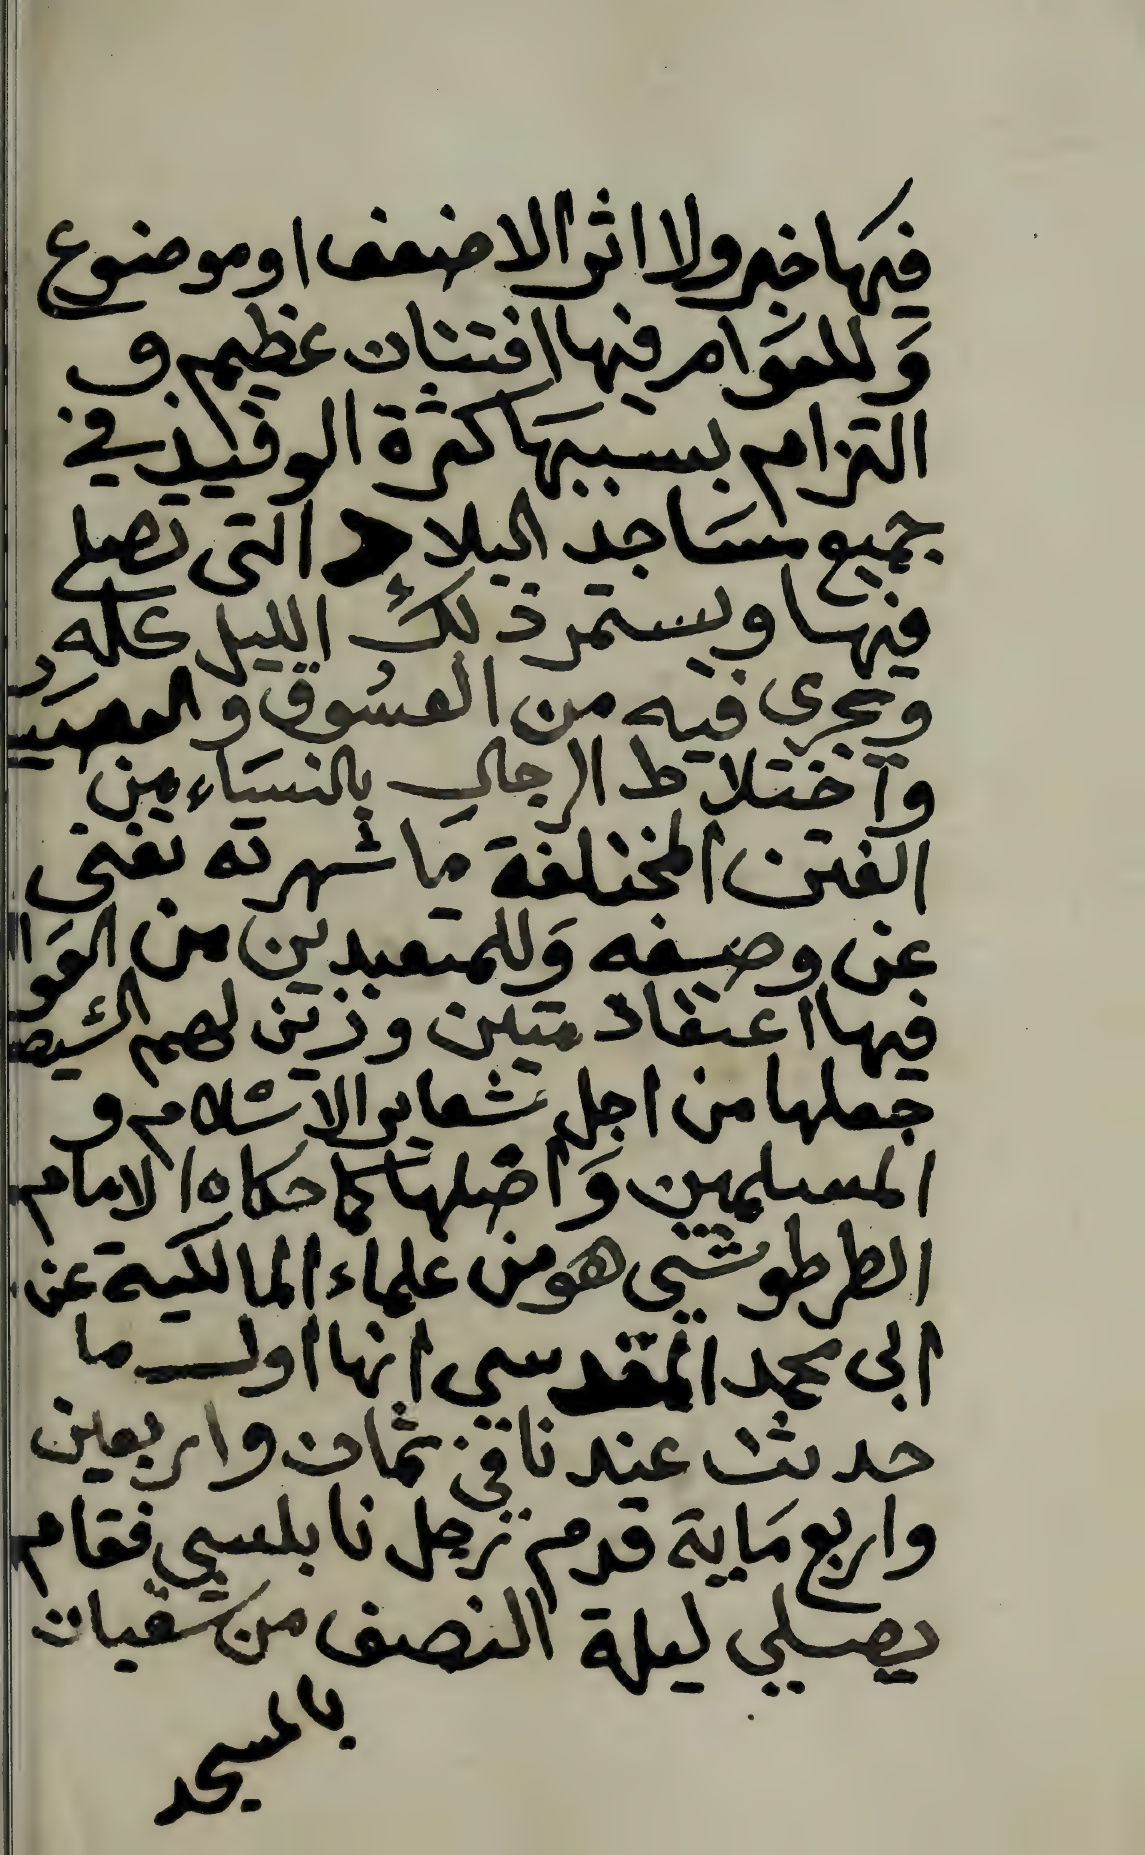 فيها خبر ولا اثر الا ضعف او موضوع
وَللعَوَام فيها افتتان عظيم و
التزام بسببها كثرة الوقيد في
جميع مسَاجد البلاد التى تصلى
فيها ويستمر ذلك الليل كله و
ويجرى فيه من الفسُوق و
وآختلاط الرجال بالنسَاء من
الفتن المختلفة ما شهرته تغنى
عن وصفه وَللمتعبدين من العَوا
فيها اعتقاد متين وزين لهم
جعلها من اجل شعاير الاسلام و
المسلمين وَاصْلها كما حكاه الامام
الطرطوشى هو من علماء المالكية عن
ابى محمد المقدسى انها اول ما
حدثت عندنا في ثمان واربعين
واربع مَاية قدم رجل نابلسي فقام
يصلي ليلة النصف من شعبان
بالمسجد